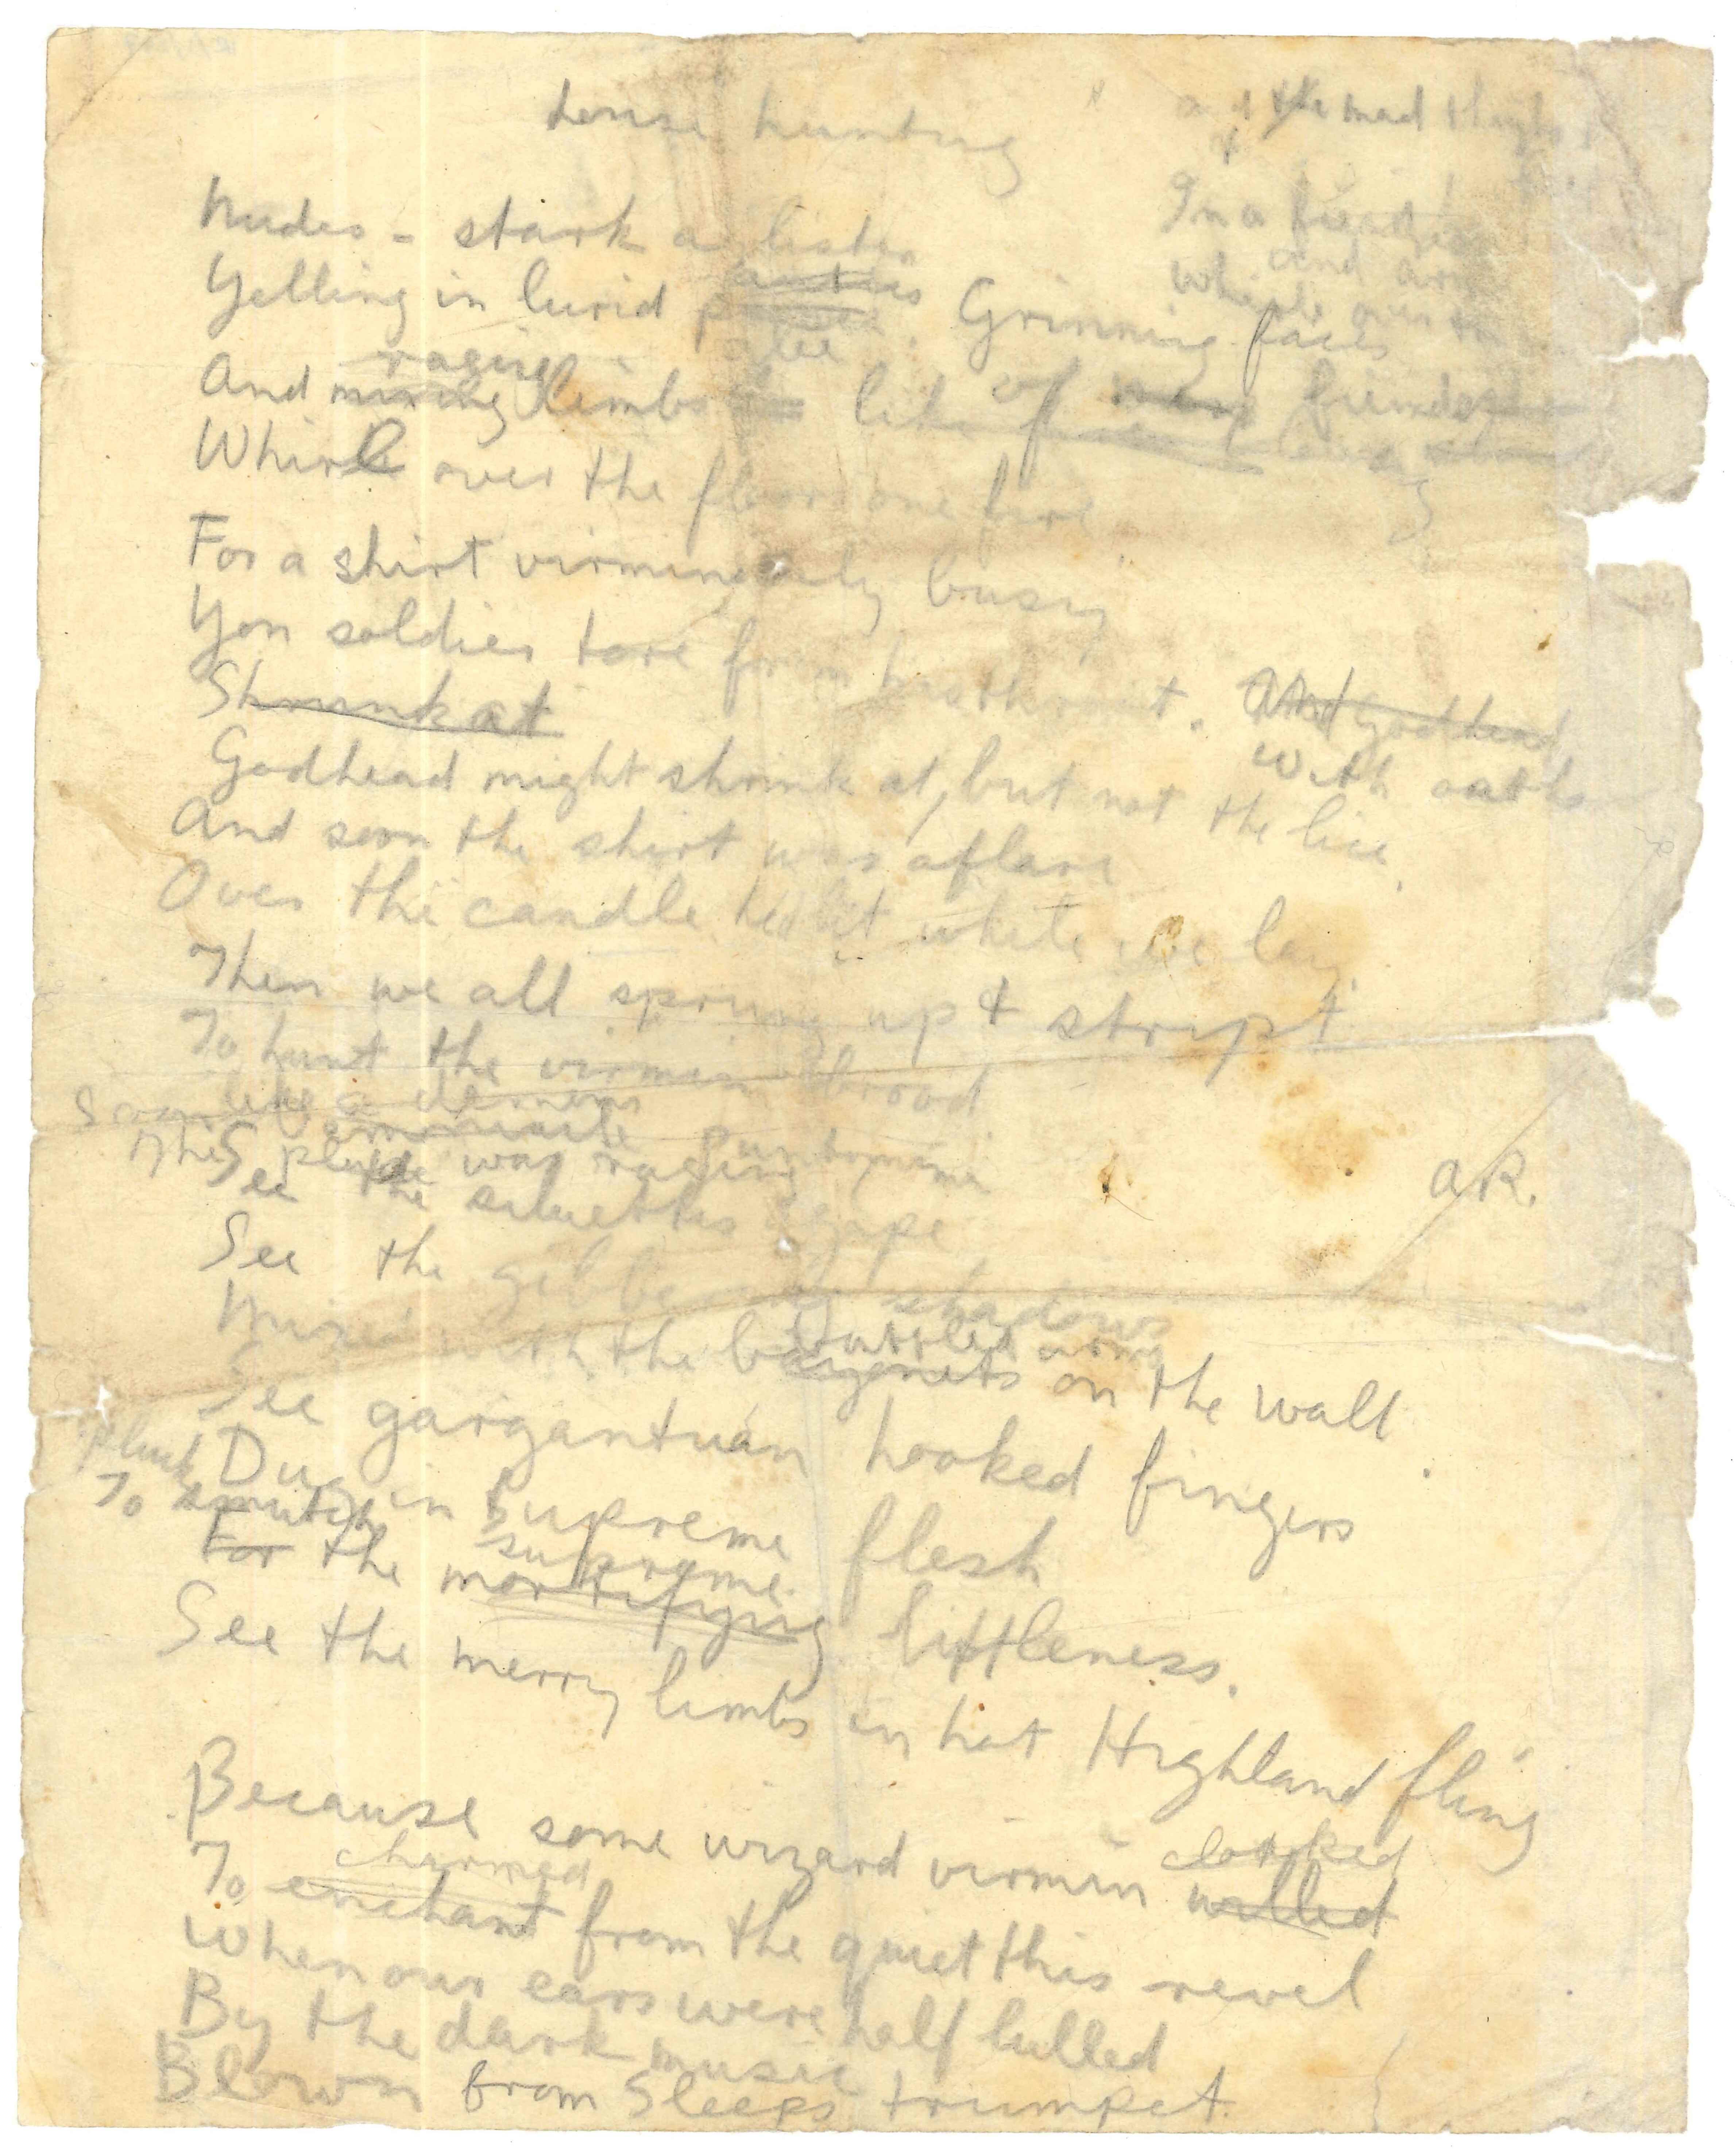 Louse hunting
the mad
In a
and
Whirl over
Nudes - stark aglisten
antics
Yelling in lurid glee. Grinning faces
raging
And mixing limbs like of fiends
Whirl over the floor one fire
For a shirt verminously busy
Yon soldier tore from his throat. And Godhead
Shrunk at
with oaths
Godhead might shrink at, but not the lice.
And soon the shirt was aflare
Over the candle he'd lit while we lay.
Then we all sprung up & stript
To hunt the vermin brood
Soon like a demons pantomime
This place was raging
A.R.
See the siluettes agape
See the gibbering shadows
battled arms
Mixed with the bayonets on the wall
See gargantuan hooked fingers
pluck
Dug in supreme flesh
To smutch
supreme
For the mortifying littleness.
See the merry limbs in hot Highland fling
Because some wizard vermin willed
charmed
To enchant from the quiet this revel
When our ears were half lulled
By the dark music
Blown from Sleeps trumpet.